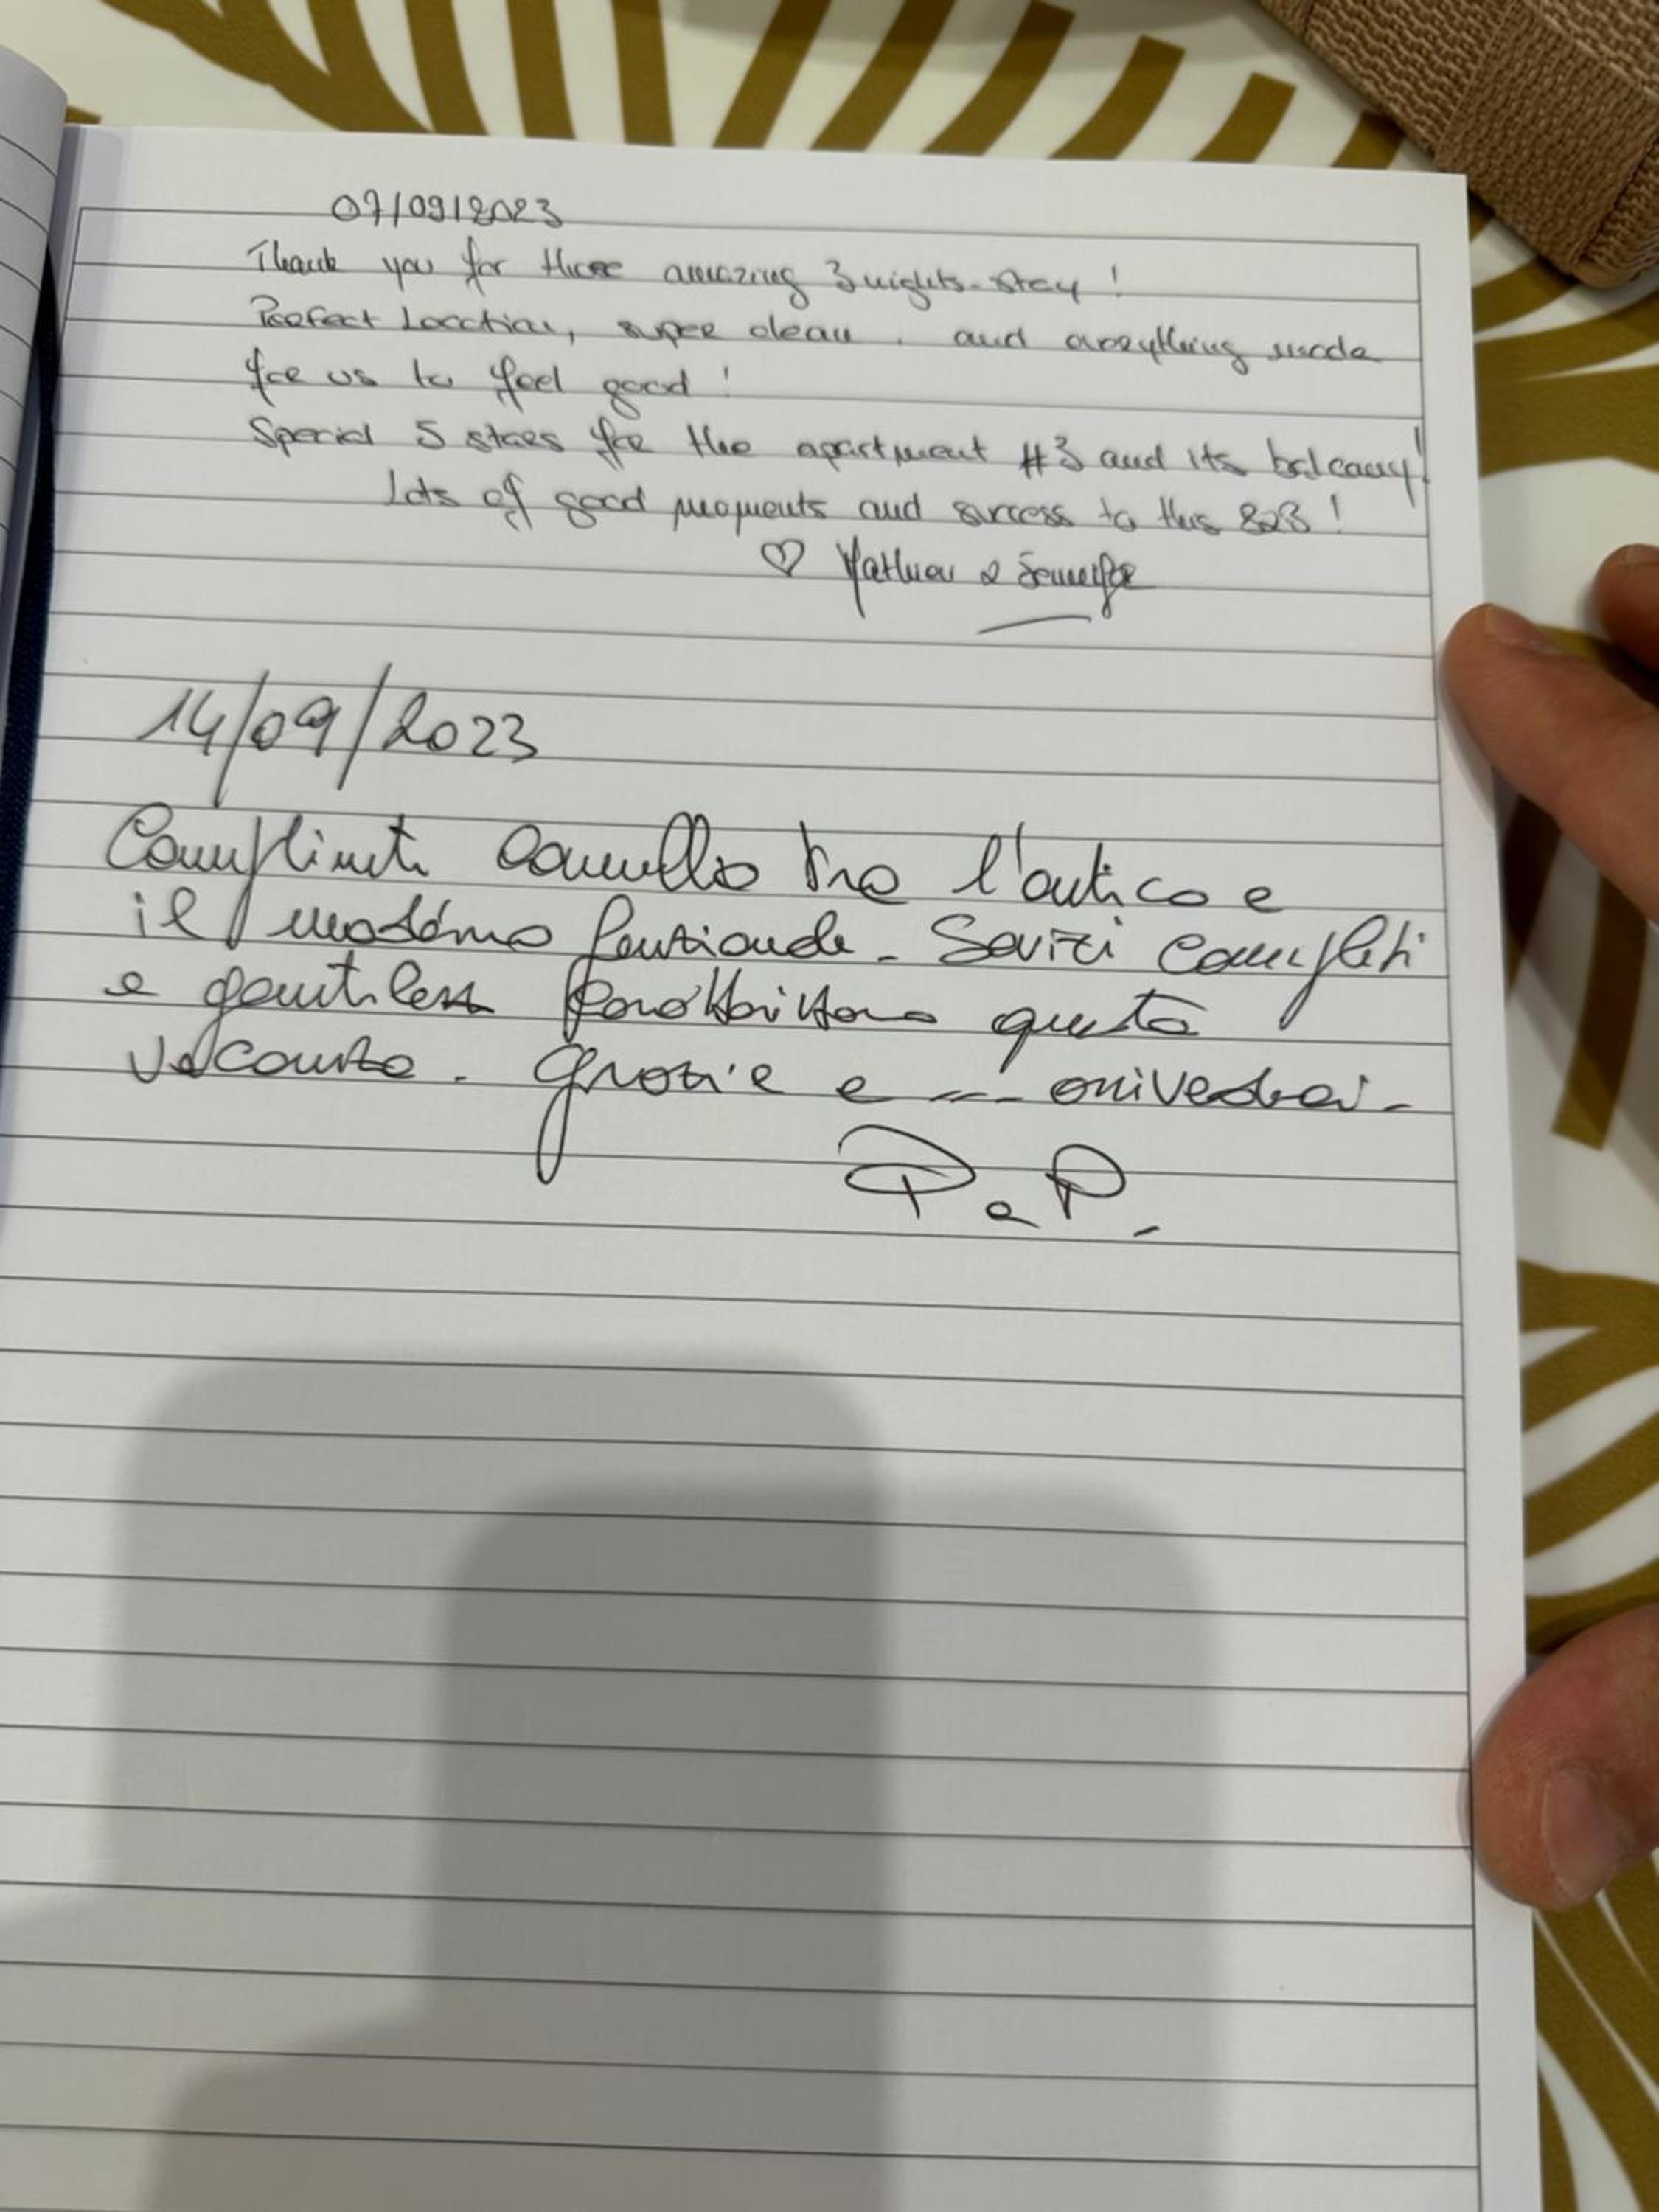 07/09/2023
Thank you for these amazing 3 nights-stay!
Perfect Location, super clean, and everything made
for us to feel good!
Special 5 stars for the apartment #3 and its balcony!
Lots of good moments and success to this B&B!
♡ Mathieu & Jennifer
14/09/2023
Complimenti connubio tra l'antico e
il moderno funzionale. Servizi completi
e gentilezza questa
vacanza. Grazie e --- arrivederci.
P e P.